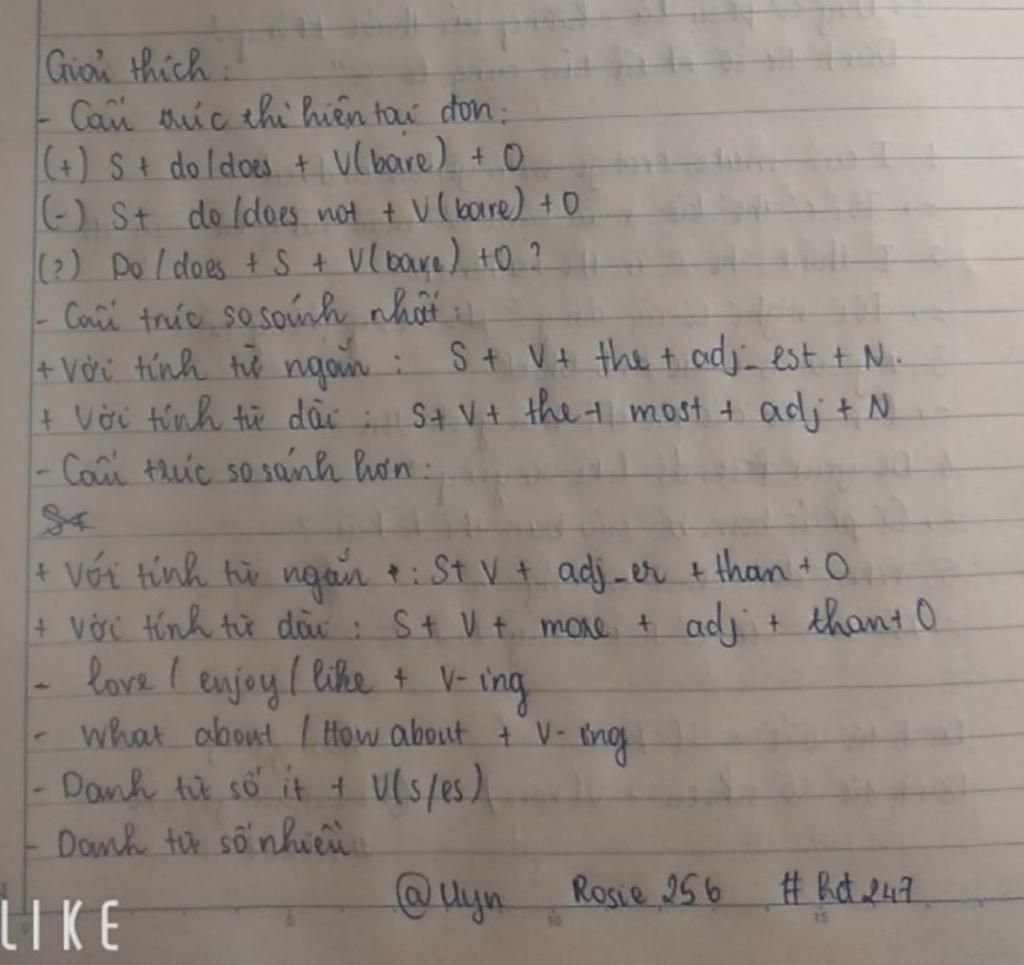 Giải thích:
- Cấu trúc thì hiện tại đơn:
(+) S + do/does + V(bare) + O
(-) S + do/does not + V(bare) + O
(?) Do/does + S + V(bare) + O?
- Cấu trúc so sánh nhất:
+ Với tính từ ngắn: S + V + the + adj_est + N.
+ Với tính từ dài: S + V + the + most + adj + N
- Cấu trúc so sánh hơn:
+ Với tính từ ngắn: S + V + adj_er + than + O
+ Với tính từ dài: S + V + more + adj + than + O
- love / enjoy / like + V-ing
- What about / How about + V-ing
- Danh từ số ít + V(s/es)
- Danh từ số nhiều
@Uyn Rosie 256 # hd 247
LIKE